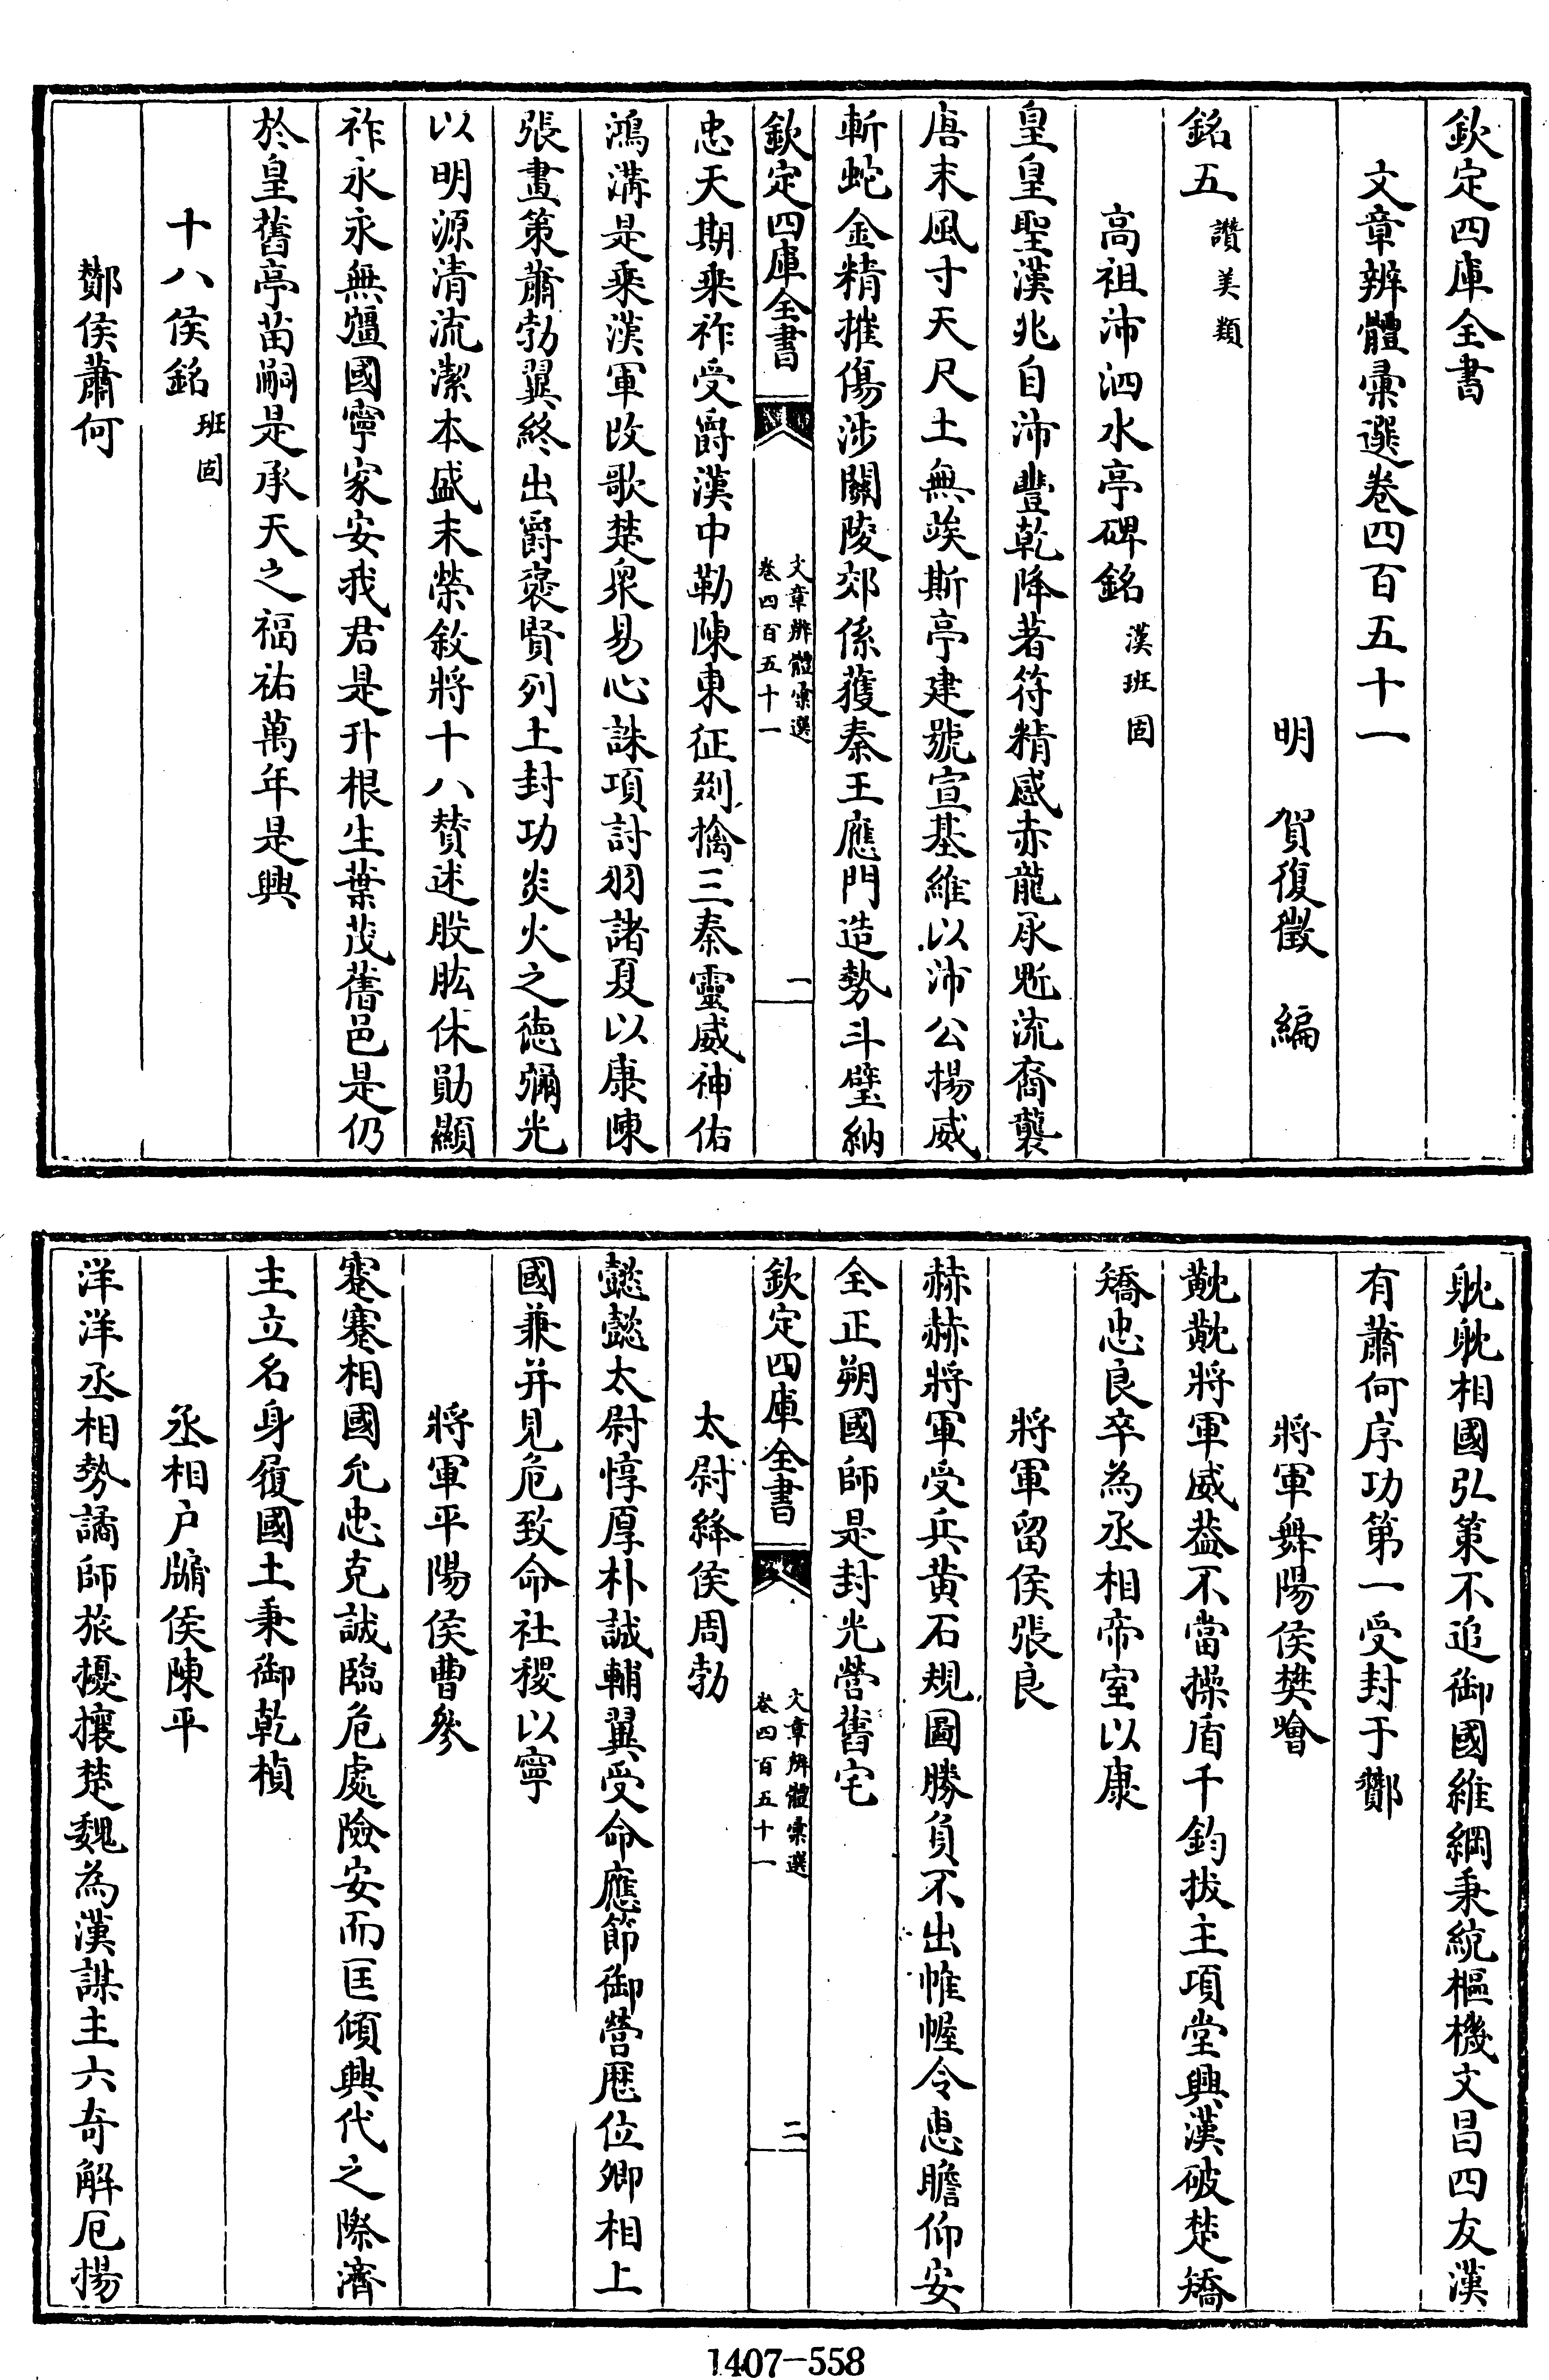 欽定四庫全書
文章辨體彙選卷四百五十一
明　賀復徵　編
銘五讚美類
高祖沛泗水亭碑銘漢班固
皇皇聖漢兆自沛豐乾降著符精感赤龍承魁流裔襲
唐末風寸天尺土無竢斯亭建號宣基維以沛公揚威
斬蛇金精摧傷涉關陵郊係獲秦王應門造勢斗璧納
欽定四庫全書
文章辨體彙選
卷四百五十一
一
忠天期乘祚受爵漢中勒陳東征剟擒三秦靈威神佑
鴻溝是乘漢軍改歌楚衆易心誅項討羽諸夏以康陳
張畫策蕭勃翼終出爵褒賢列土封功炎火之德彌光
以明源清流潔本盛末榮敘將十八贊述股肱休勛顯
祚永永無彊國寧家安我君是升根生葉茂舊邑是仍
於皇舊亭苗嗣是承天之福祐萬年是興
十八侯銘班固
酇侯蕭何
躭躭相國弘策不追御國維綱秉統樞機文昌四友漢
有蕭何序功第一受封于酇
將軍舞陽侯樊噲
黕黕將軍威葢不當操盾千鈞拔主項堂興漢破楚矯
矯忠良卒為丞相帝室以康
將軍留侯張良
赫赫將軍受兵黃石規圖勝負不出帷幄令恵瞻仰安
全正朔國師是封光營舊宅
欽定四庫全書
文章辨體彙選
卷四百五十一
二
太尉絳侯周勃
懿懿太尉惇厚朴誠輔翼受命應節御營歷位卿相上
國兼并見危致命社稷以寧
將軍平陽侯曹參
蹇蹇相國允忠克誠臨危處險安而匡傾興代之際濟
主立名身履國土秉御乾楨
丞相户牖侯陳平
洋洋丞相勢譎師旅擾攘楚魏為漢謀主六奇解厄揚
1407-558